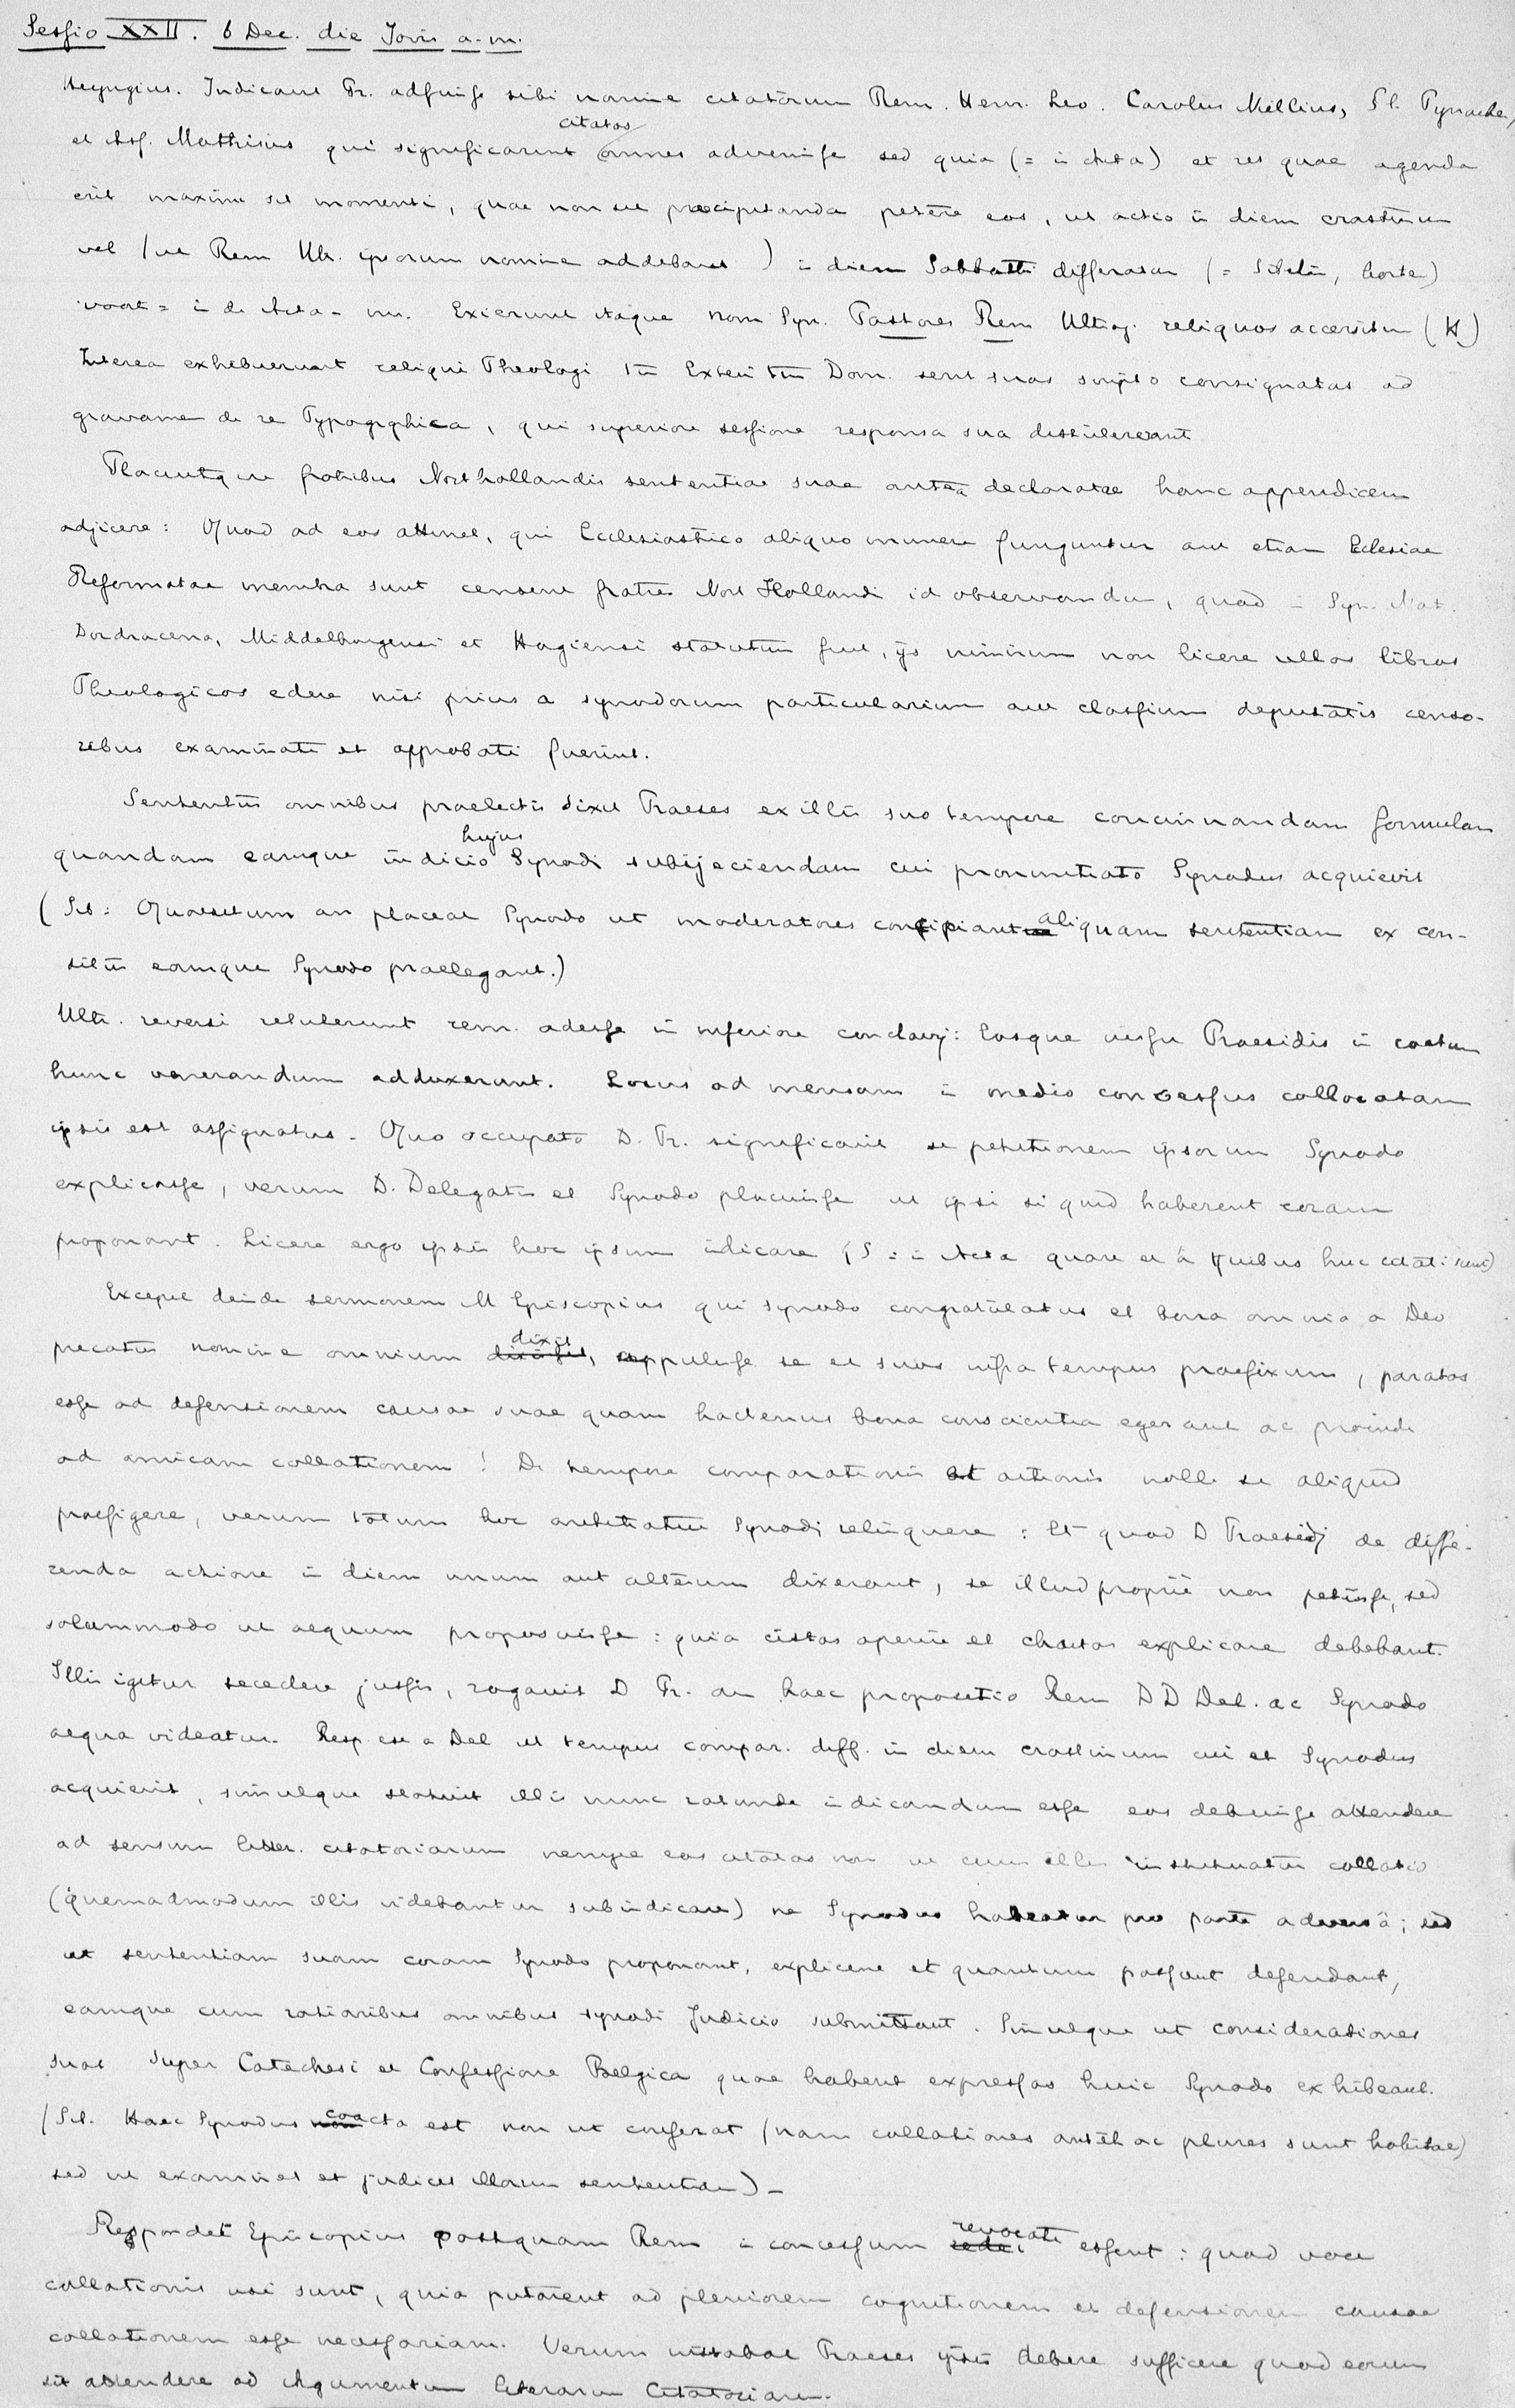 Sessio XXII. 6 Dec. die Jovis a.m.
Heyngius. Indicavit Pr. adfuisse sibi nomine citatorum Rem. Henr. Leo. Carolus Niellius,
et Ass. Mathisius qui significarint omnes citatos advenisse sed quia (= in Acta) et res quae agenda
erit maximi sit momenti, quae non sit praecipitanda petere eos, ut actio in diem crastinum
vel (ut Rem Ultr. ipsorum nomine addebant) in diem Sabbathi differatur
voort = in de Acta - Exierunt itaque nom Syn. Pastores Rem Ultraj. reliquos accersitum (H)
Interea exhibuerunt reliqui Theologi tum Exteri tum Dom. sent suas scripto consignatas ad
gravamen de re Typographica, qui superiore sessione responsa sua distulerant
Placuitque fratribus Northollandis sententiae suae antea declaratae hanc appendicem
adjicere: Quod ad eos attinet, qui Ecclesiastico aliquo munere funguntur aut etiam Eclesiae
Reformatae membra sunt censent fratres Nort Hollandi id observandum, quod in Syn. Nat.
Dordracena, Middelburgensi et Hagiensi statutum fuit, ijs nimirum non licere ullos libros
Theologicos edere nisi prius a synodorum particularium aut classium deputatis censo-
ribus examinati et approbati fuerint.
Sententiis omnibus praelectis dixit Praeses ex illis suo tempore concinnandam formulam
quandam eamque iudicio hujus Synodi subijeciendam cui pronuntiato Synodus acquievit
(Sib: Quaesitum an placeat Synodo ut moderatores concipiant aliquam sententiam ex con-
siliis eamque Synodo praelegant.)
Ultr. reversi retulerunt rem. adesse in inferiore conclavj: Eosque iussu Praesidis in coetum
hunc venerandum adduxerunt. Locus ad mensam in medio consessus collocatam
ipsis est assignatus. Quo occupato D. Pr. significavit se petitionem ipsorum Synodo
explicasse, verum D. Delegatis et Synodo placuisse ut ipsi si quid haberent coram
proponant. Licere ergo ipsis hoc ipsum indicare (S = in Acta quare et à quibus huc citati sunt)
Excepit deinde sermonem M Episcopius qui synodo congratulatus et bona omnia a Deo
precatus nomine omnium dixit, appulisse se et suos infra tempus praefixum, paratos
esse ad defensionem causae suae quam hactenus bona conscientia egerant ac proinde
ad amicam collationem! De tempore comparationis et actionis nolle se aliquid
praefigere, verum totum hoc arbitratui Synodi relinquere: Et quod D Praesidj de diffe-
renda actione in diem unum aut alterum dixerant, se illud proprie non petiisse, sed
solummodo ut aequum proposuisse: quia cistas aperire et chartas explicare debebant.
Illis igitur secedere jussis, rogavit D Pr. an haec propositio Rem DD Del. ac Synodo
aequa videatur. Resp. est a Del ut tempus compar. diff. in diem crastinum cui et Synodus
acquievit, simulque statuit illis nunc rotunde indicandum esse eos debuisse attendere
ad sensum litter. citatoriarum nempe eos citatos non ut cum illis instituatur collatio
(quemadmodum illis videbantur subindicare) ne Synodus habeatur pro parte adversâ; sed
ut sententiam suam coram Synodo proponant, explicent et quantum possunt defendant,
eamque cum rationibus omnibus synodi Judicio submittant. Simulque ut considerationes
suas super Catechesi et Confessione Belgica quae habent expressas huic Synodo exhibeant.
(Sib. Haec Synodus coacta est non ut conferat (nam collationes antehac plures sunt habitae)
sed ut examinet et judicet illorum sententiam) -
Respondet Episcopius postquam Rem in concessum revocati essent: quod voce
collationis usi sunt, quia putarent ad pleniorem cognitionem et defensionem causae
collationem esse necessariam. Verum instabat Praeses ipsis debere sufficere quod eorum
sit attendere ad Argumentum literarum Citatoriarum.